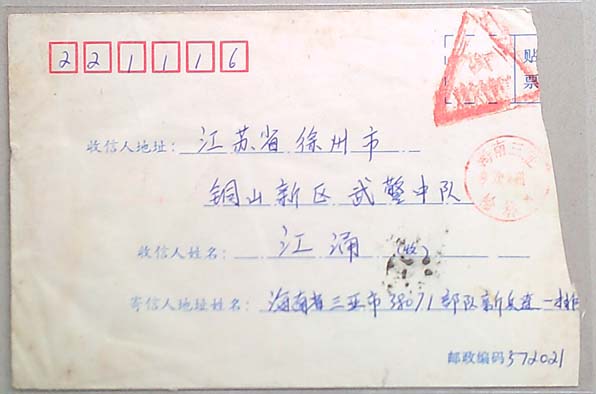 221116
贴
票
收信人地址：江苏省徐州市
铜山新区武警中队
收信人姓名：江涌（收）
寄信人地址姓名：海南省三亚市38071部队新兵连一排
邮政编码572021
海南三亚